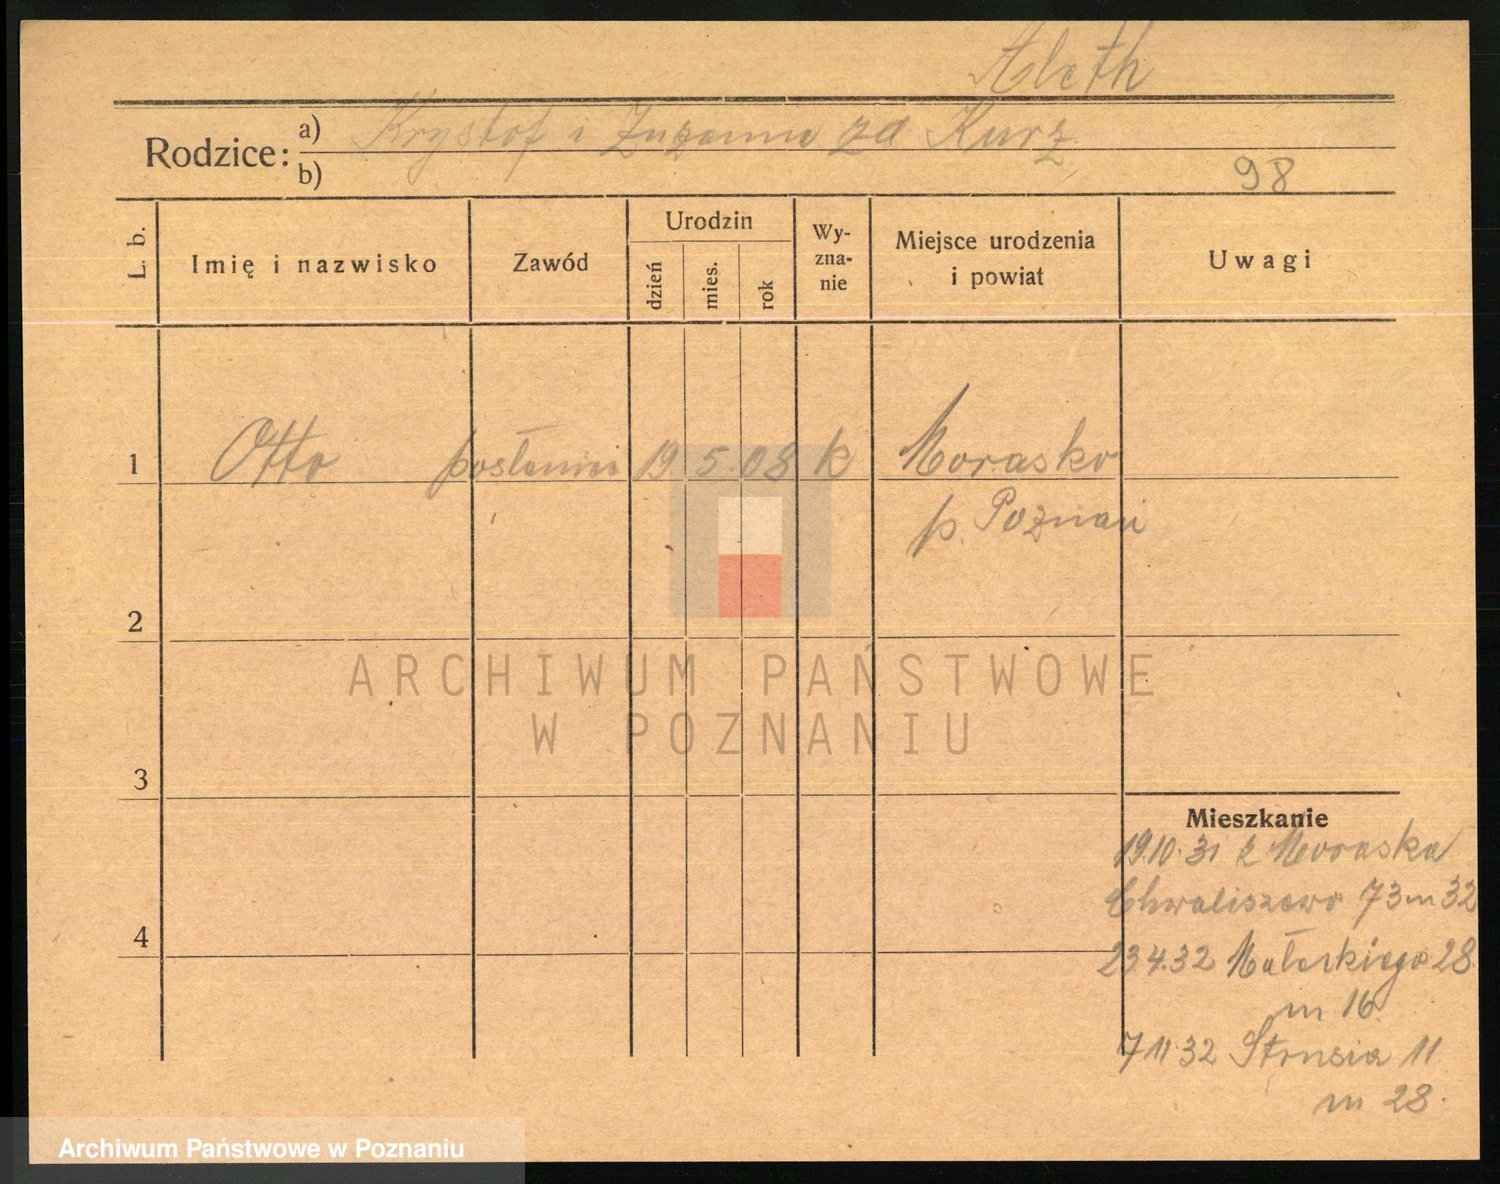 Aleth
Rodzice: a) Krystof i Zuzanna zd Kurz
b)
98
L. b.
Imię i nazwisko
Zawód
Urodzin
dzień
mies.
rok
Wy-
zna-
nie
Miejsce urodzenia
i powiat
Uwagi
1 Otto 19 5. 08 k Morasko
p. Poznań
2
ARCHIWUM PAŃSTWOWE
W POZNANIU
3
Mieszkanie
19.10.31 z Moraska
Chwaliszewo 73 m 32
4
23.4.32 Małeckiego 28
m 16
7.11.32 Strusia 11
m 28.
Archiwum Państwowe w Poznaniu